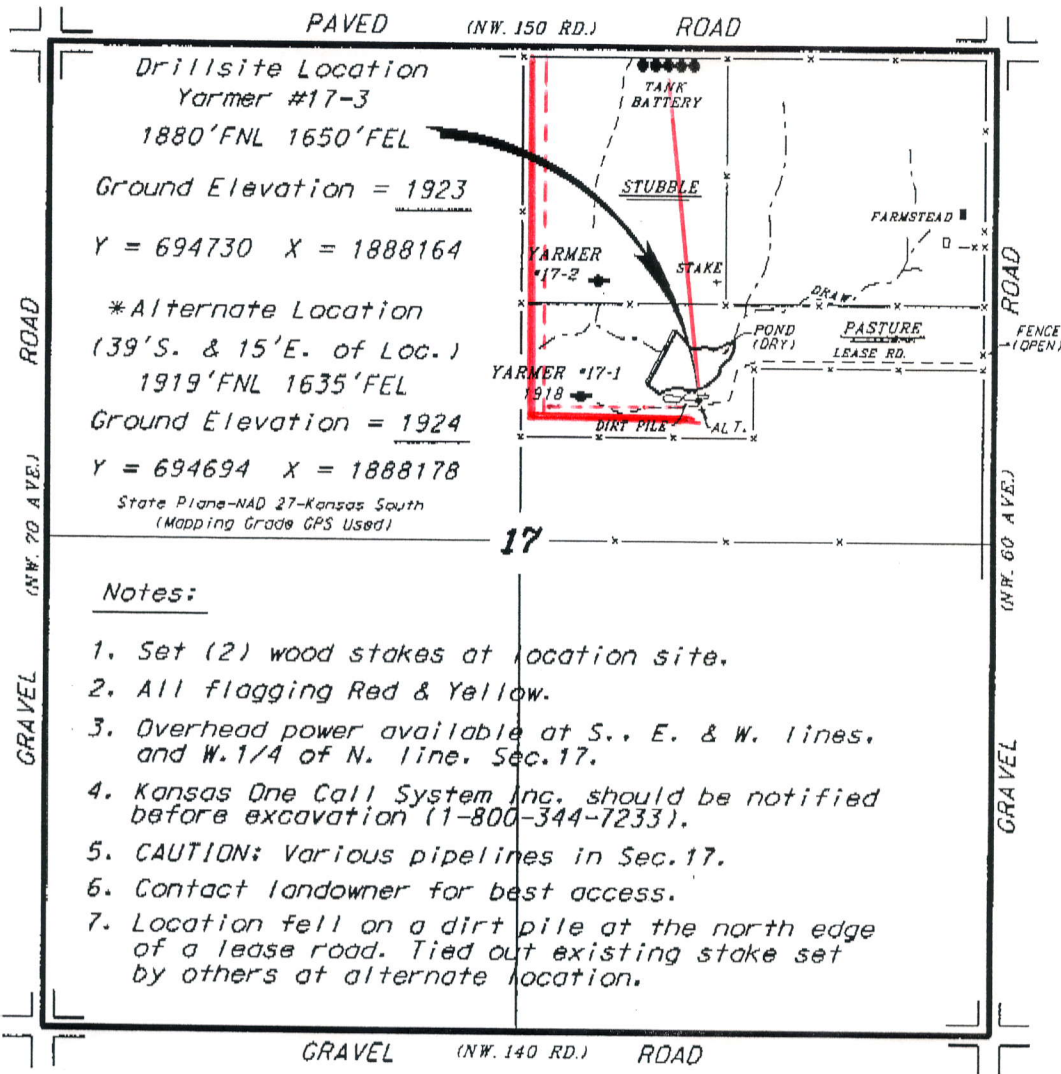 PAVED (NW. 150 RD.) ROAD
Drillsite Location
Yarmer #17-3
1880'FNL 1650'FEL
Ground Elevation = 1923
Y = 694730 X = 1888164
*Alternate Location
(39'S. & 15'E. of Loc.)
1919'FNL 1635'FEL
Ground Elevation = 1924
Y = 694694 X = 1888178
State Plane-NAD 27-Kansas South
(Mapping Grade GPS Used)
TANK
BATTERY
STUBBLE
FARMSTEAD
YARMER
#17-2
STAKE
DRAW.
POND
(DRY)
PASTURE
LEASE RD.
FENCE
(OPEN)
YARMER #17-1
1918
DIRT PILE
ALT.
17
ROAD
(NW. 70 AVE.)
GRAVEL
ROAD
(NW. 60 AVE.)
GRAVEL
Notes:
1. Set (2) wood stakes at location site.
2. All flagging Red & Yellow.
3. Overhead power available at S., E. & W. lines,
and W.1/4 of N. line, Sec.17.
4. Kansas One Call System Inc. should be notified
before excavation (1-800-344-7233).
5. CAUTION: Various pipelines in Sec.17.
6. Contact landowner for best access.
7. Location fell on a dirt pile at the north edge
of a lease road. Tied out existing stake set
by others at alternate location.
GRAVEL (NW. 140 RD.) ROAD